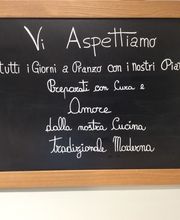 Vi Aspettiamo
tutti i Giorni a Pranzo con i nostri Piat
Preparati con Cura e
Amore
dalla nostra Cucina
tradizionale Moderna